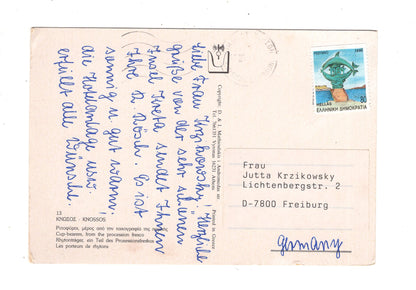 Liebe Frau Krzikowsky! Herzliche
Grüße von der sehr schönen
Insel Kreta sendet Ihnen
Ihre D. Es ist
sonnig u. gut warm.
die Hotelanlage usw.
erfüllt alle Wünsche.
13
ΚΝΩΣΟΣ - KNOSSOS
Ριτοφόροι, μέρος από την τοιχογραφία της πομπής
Cup-bearers, from the procession fresco
Rhytonträger, ein Teil des Prozessionsfreskos
Les porteurs de rhytons
Printed in Greece
HELLAS
80
ΕΛΛΗΝΙΚΗ ΔΗΜΟΚΡΑΤΙΑ
Frau
Jutta Krzikowsky
Lichtenbergstr. 2
D-7800 Freiburg
Germany